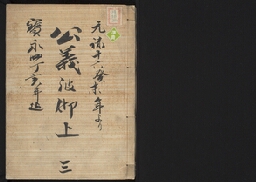 元禄十六癸未年より
公義被仰上
三
寳永四丁亥年迄